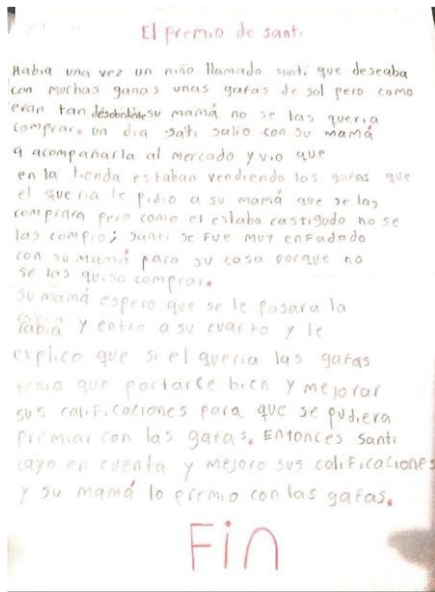 El premio de santi
Habia una vez un niño llamado santi que deseaba
con muchas ganas unas gafas de sol pero como
eran tan desobediente su mamá no se las queria
comprar. un dia sati salio con su mamá
a acompañarla al mercado y vio que
en la tienda estaban vendiendo las gafas que
el queria le pidio a su mamá que se las
comprara pero como el estaba castigado no se
las compro; santi se fue muy enfadado
con su mamá para su casa porque no
se las quiso comprar.
su mamá espero que se le pasara la
rabia y entro a su cuarto y le
explico que si el queria las gafas
tenia que portarce bien y mejorar
sus calificaciones para que se pudiera
premiar con las gafas. Entonces santi
cayo en cuenta y mejoro sus calificaciones
y su mamá lo premio con las gafas.
Fin